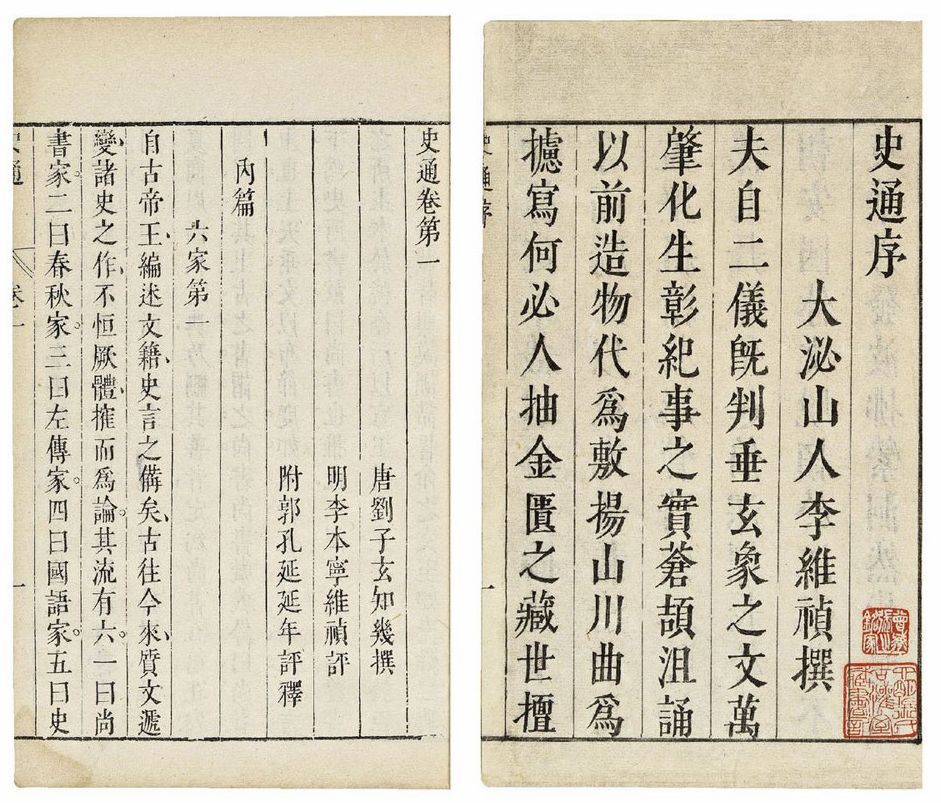 史通序
大泌山人李維禎撰
夫自二儀旣判垂玄象之文萬
肇化生彰紀事之實蒼頡沮誦
以前造物代爲敷揚山川曲爲
攄寫何必人抽金匱之藏世擅
史通序
一
史通卷第一
唐劉子玄知幾撰
明李本寧維禎評
附郭孔延延年評釋
內篇
六家第一
自古帝王編述文籍史言之備矣古往今來質文遞
變諸史之作不恒厥體搉而爲論其流有六一曰尚
書家二曰春秋家三曰左傳家四曰國語家五曰史
史通
卷一
一